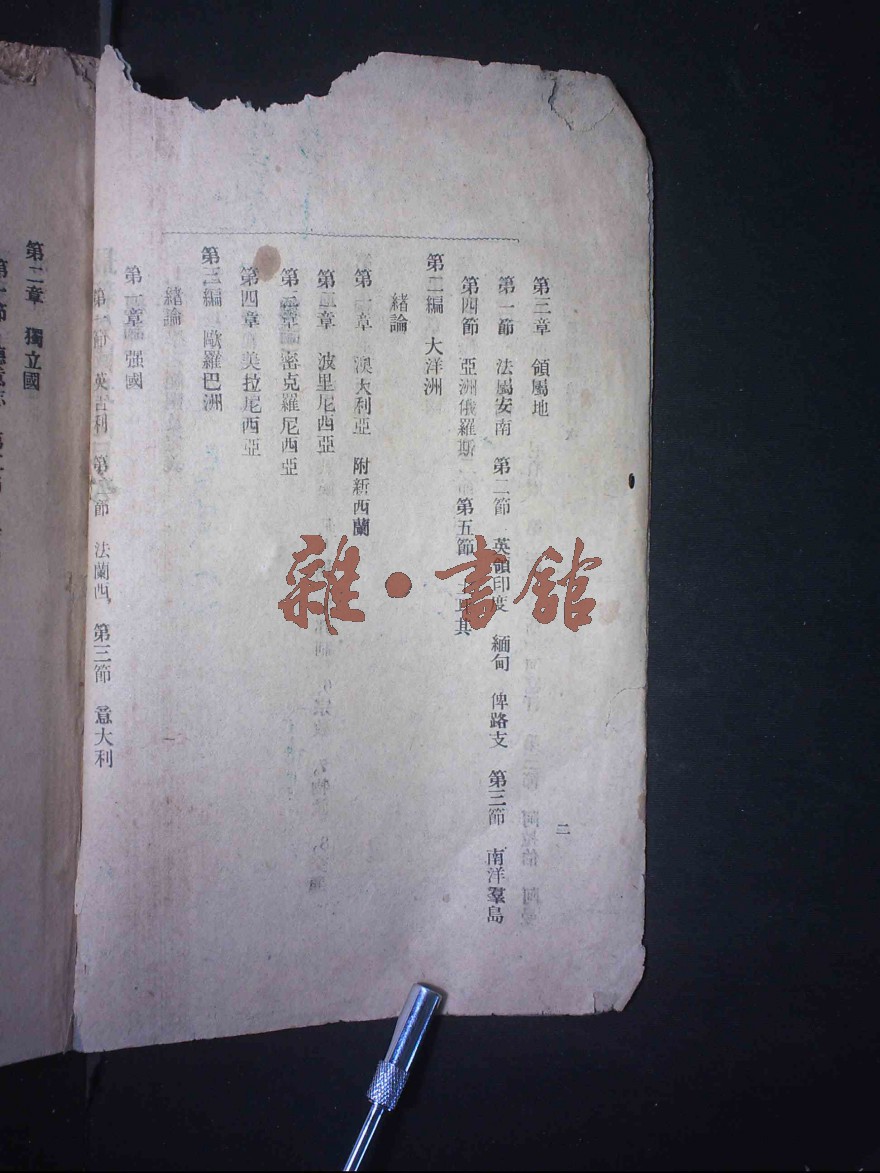 第三章　領屬地
第一節　法屬安南　第二節　英領印度　緬甸　俾路支　第三節　南洋羣島
第四節　亞洲俄羅斯　第五節　土耳其
第二編　大洋洲
緒論
第一章　澳大利亞　附新西蘭
第二章　波里尼西亞
第三章　密克羅尼西亞
第四章　美拉尼西亞
第三編　歐羅巴洲
緒論
第一章　强國
第一節　英吉利　第二節　法蘭西　第三節　意大利
第二章　獨立國
二
雜·書館